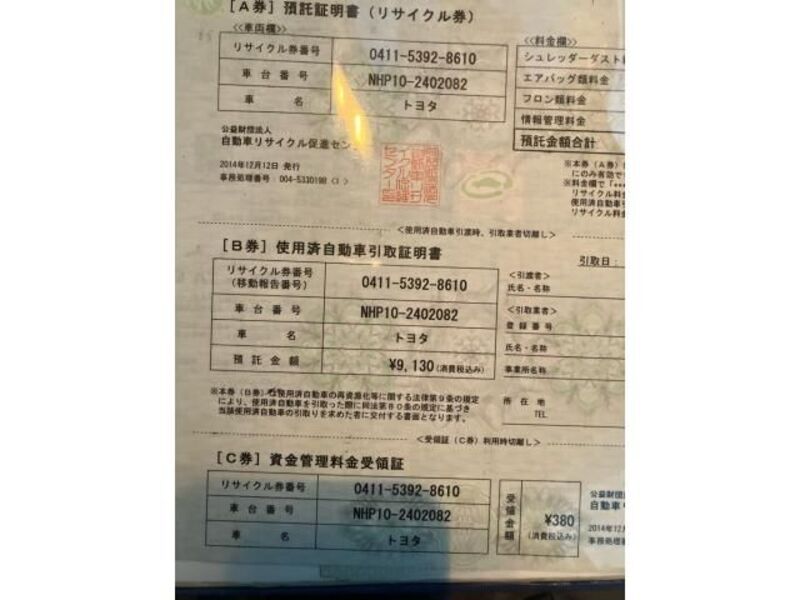 [A券] 預託証明書(リサイクル券)
<<車両欄>>
リサイクル券番号 0411-5392-8610
車台番号 NHP10-2402082
車名 トヨタ
<<料金欄>>
シュレッダーダスト
エアバッグ類料金
フロン類料金
情報管理料金
預託金額合計
公益財団法人
自動車リサイクル促進セン
2014年12月12日 発行
事務処理番号:004-5330198
※本券(A券)
にのみ有効で
※料金欄で
リサイクル料
使用済自動車
リサイクル料
<使用済自動車引渡時、引取業者切離し>
[B券] 使用済自動車引取証明書
引取日:
リサイクル券番号
(移動報告番号) 0411-5392-8610
車台番号 NHP10-2402082
車名 トヨタ
預託金額 ¥9,130(消費税込み)
<引渡者>
氏名・名称
<引取業者>
登録番号
氏名・名称
事業所名称
所在地
TEL
※本券(B券)は使用済自動車の再資源化等に関する法律第9条の規定
により、使用済自動車を引取った際に同法第80条の規定に基づき
当該使用済自動車の引取りを求めた者に交付する書面となります。
<受領証(C券)利用時切離し>
[C券] 資金管理料金受領証
リサイクル券番号 0411-5392-8610
車台番号 NHP10-2402082
車名 トヨタ
受領金額 ¥380
(消費税込み)
公益財団
自動車
2014年12月
事務処理番